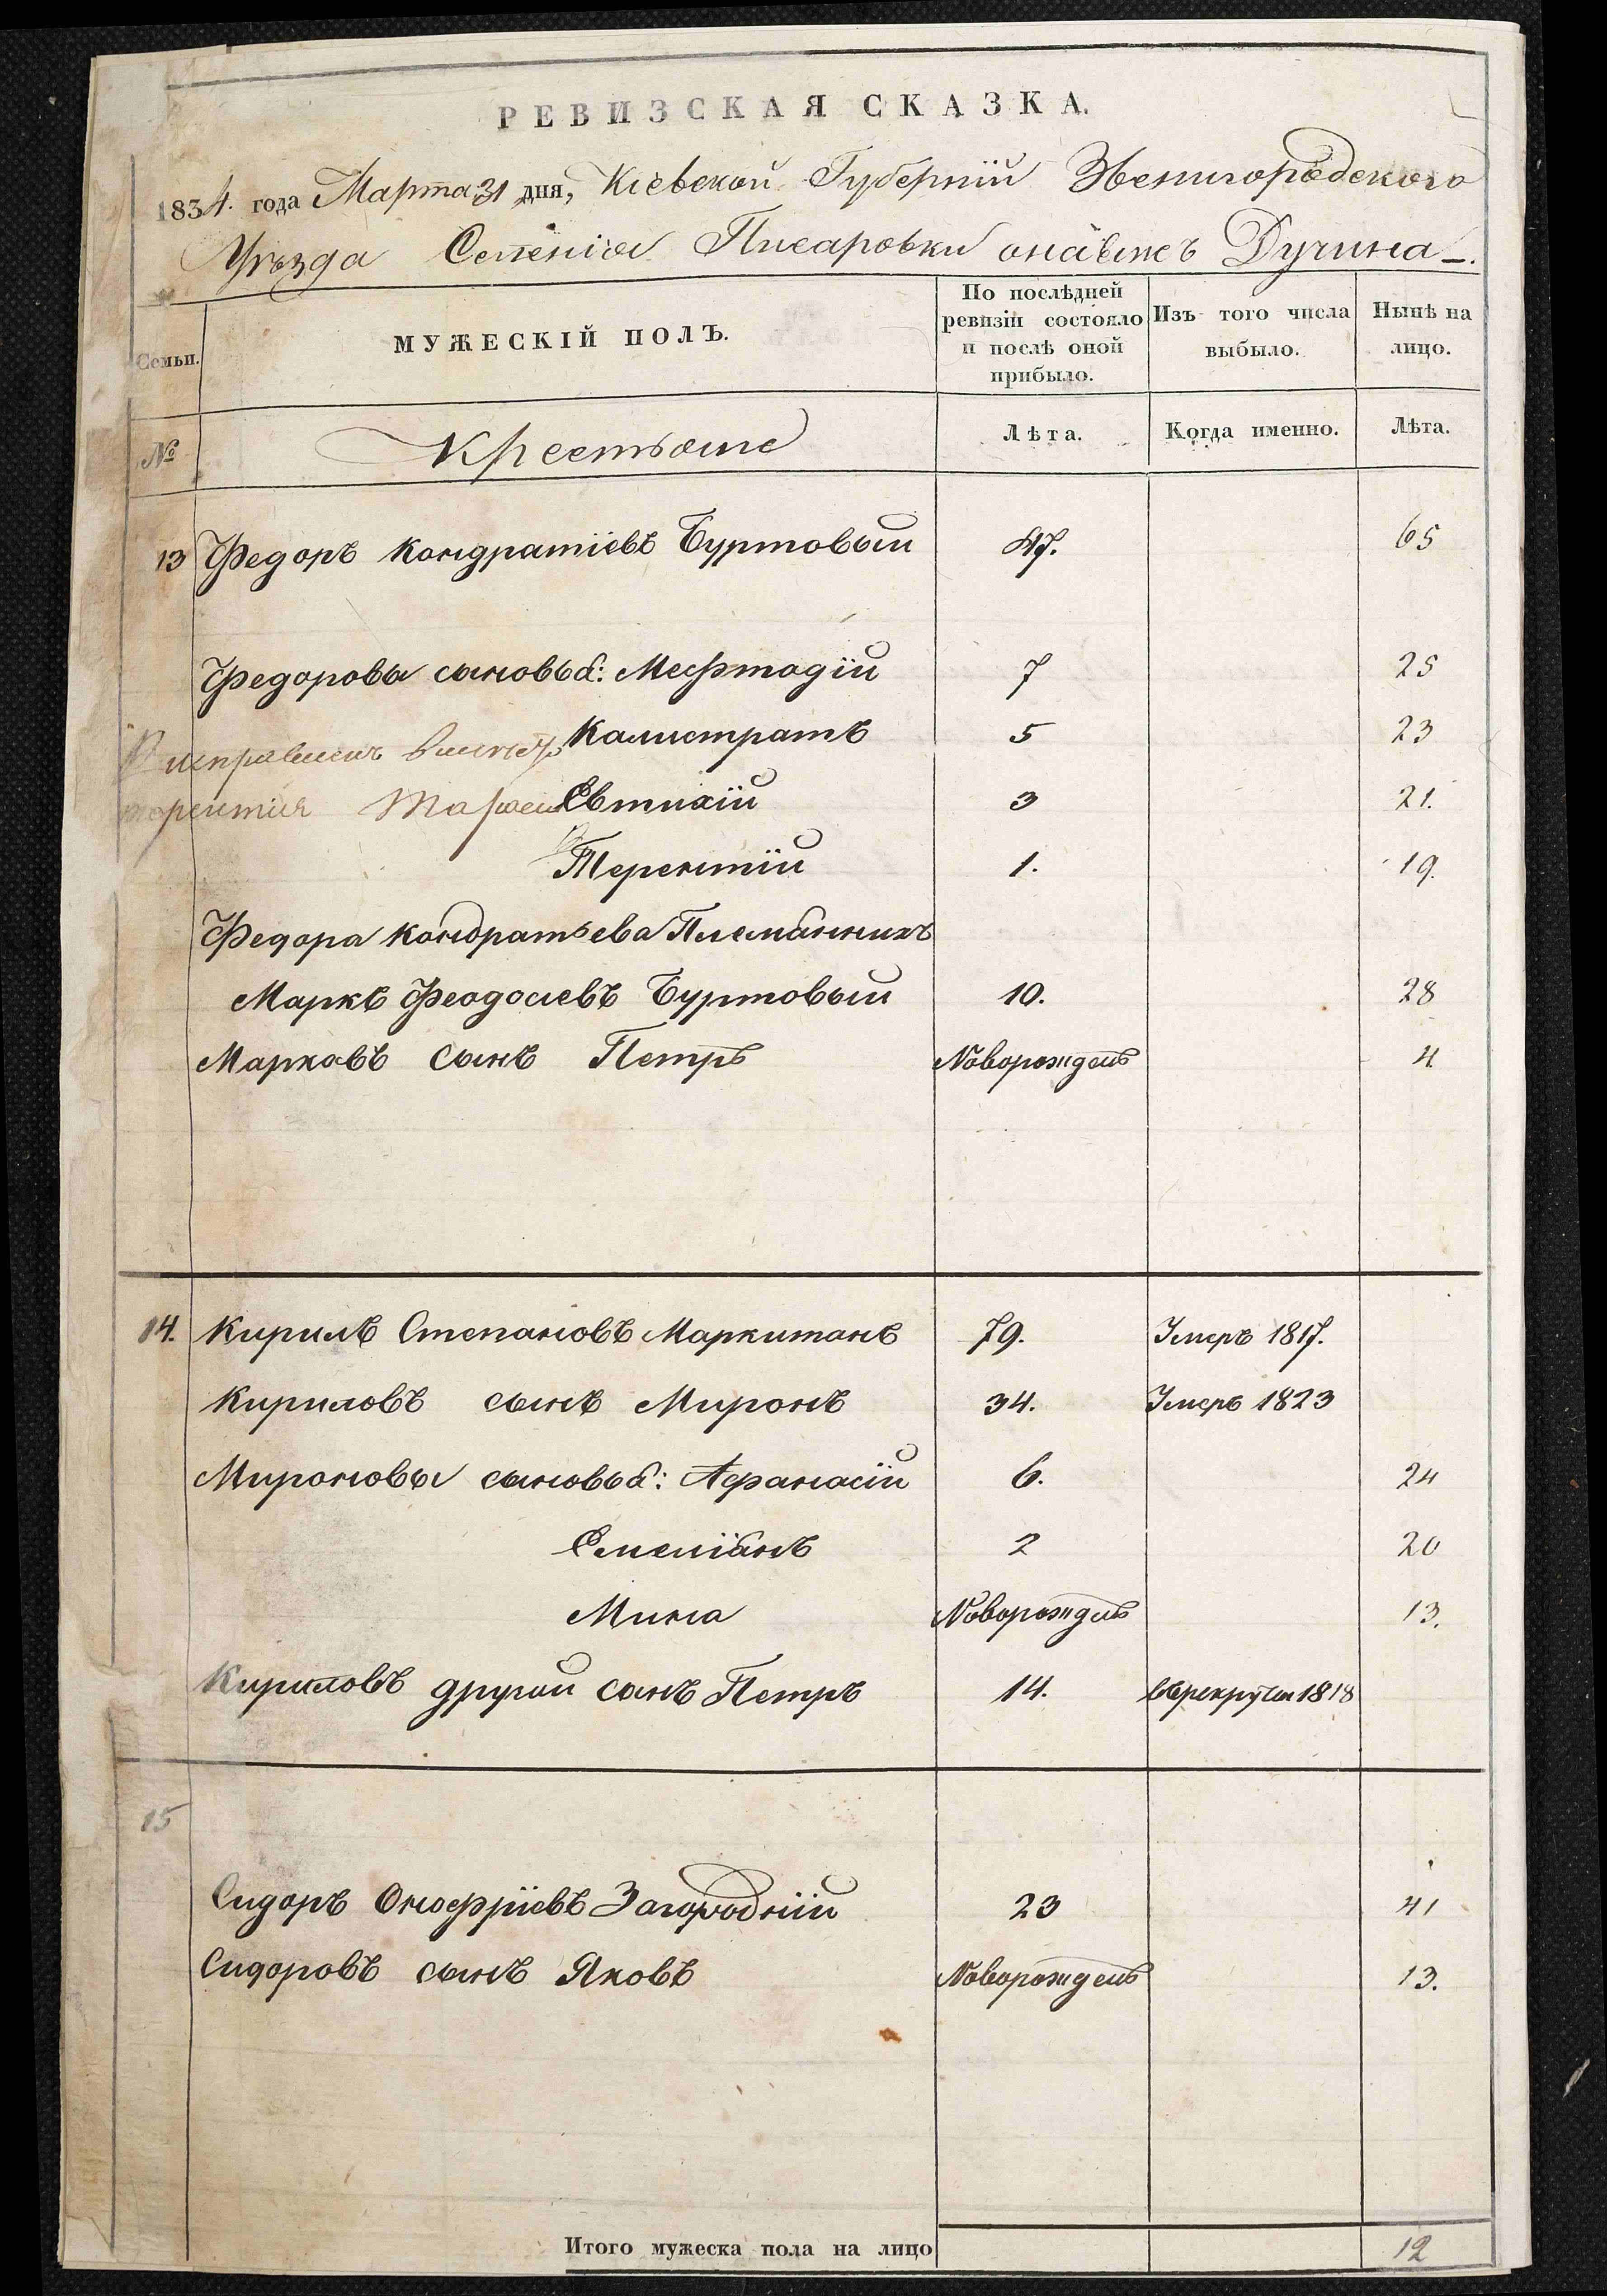 РЕВИЗСКАЯ СКАЗКА.
1834. года Марта 31 дня, Кіевской Губерніи Звенигородского
Уѣзда Селенія Писаровки онаежъ Дучина
Семьи.
МУЖЕСКІЙ ПОЛЪ.
По послѣдней ревизіи состояло и послѣ оной прибыло.
Изъ того числа выбыло.
Нынѣ на лицо.
№ Крестьяне Лѣта. Когда именно. Лѣта.
13 Федоръ Кондратіевъ Буртовый 47. 65
Федоровы сыновья: Мефтодій 7 25
Калистратъ 5 23
Евтихій 3 21.
Терентій 1. 19.
Федора Кондратьева Племянникъ
Маркъ Феодосіевъ Буртовый 10. 28
Марковъ сынъ Петръ Новорожденъ 4
14. Кирилъ Степановъ Маркитанъ 79. Умеръ 1817.
Кириловъ сынъ Миронъ 34. Умеръ 1823
Мироновы сыновья: Афанасій 6. 24
Емеліянъ 2 20
Мина Новорожденъ 13.
Кириловъ другой сынъ Петръ 14. 1818
15
Сидоръ Онофріевъ Загородній 23 41
Сидоровъ сынъ Яковъ Новорожденъ 13.
Итого мужеска пола на лицо 12